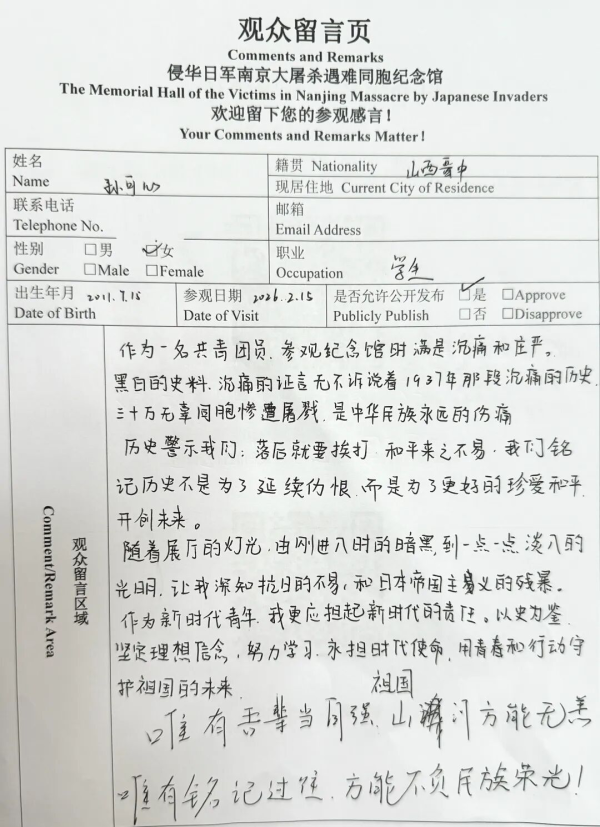 观众留言页
Comments and Remarks
侵华日军南京大屠杀遇难同胞纪念馆
The Memorial Hall of the Victims in Nanjing Massacre by Japanese Invaders
欢迎留下您的参观感言！
Your Comments and Remarks Matter！
姓名
Name 孙可心
籍贯 Nationality 山西晋中
现居住地 Current City of Residence
联系电话
Telephone No.
邮箱
Email Address
性别 □男 ☑女
Gender □Male □Female
职业
Occupation 学生
出生年月 2011.7.15
Date of Birth
参观日期 2026.2.15
Date of Visit
是否允许公开发布 ☑是 □Approve
Publicly Publish □否 □Disapprove
观众留言区域
Comment/Remark Area
作为一名共青团员，参观纪念馆时满是沉痛和庄严。
黑白的史料，沉痛的证言无不诉说着1937年那段沉痛的历史，
三十万无辜同胞惨遭屠戮，是中华民族永远的伤痛
历史警示我们：落后就要挨打，和平来之不易，我们铭
记历史不是为了延续仇恨，而是为了更好的珍爱和平，
开创未来。
随着展厅的灯光，由刚进入时的暗黑，到一点一点淡入的
光明，让我深知抗日的不易，和日本帝国主义的残暴。
作为新时代青年，我更应担起新时代的责任。以史为鉴，
坚定理想信念，努力学习，永担时代使命，用青春和行动守
护祖国的未来。
祖国
唯有吾辈当同强，山河方能无恙
唯有铭记过往，方能不负民族荣光！